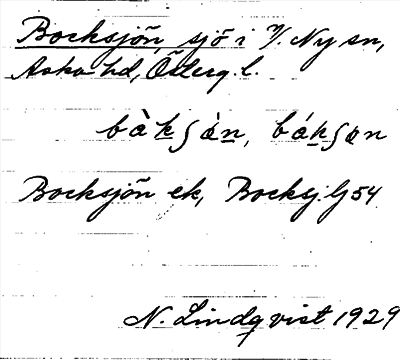 Bocksjön, sjö i V. Ny sn,
Aska hd, Österg. l.
bàkʃàn, bákʃan
Bocksjön ek, Bocksj. G 54
N. Lindqvist 1929